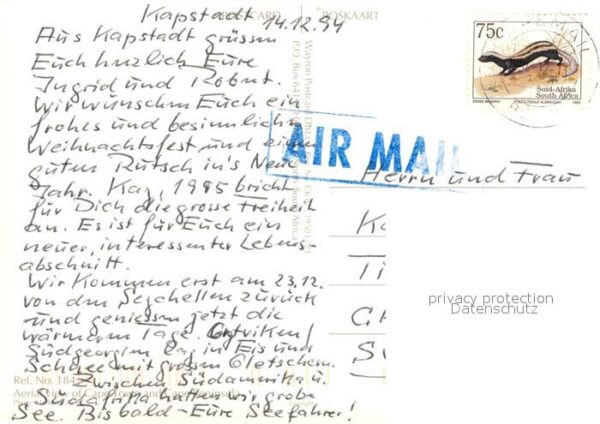 Kapstadt 14.12.94
POSTCARD POSKAART
Aus Kapstadt grüssen
Euch herzlich Eure
Ingrid und Robert.
Wir wünschen Euch ein
frohes und besinnliches
Weihnachtsfest und einen
guten Rutsch in's Neue
Jahr. 1995 bricht
für Dich die grosse Freiheit
an. Es ist für Euch ein
neuer, interessanter Lebens-
abschnitt.
Wir kommen erst am 23.12.
von den Seychellen zurück
und geniessen jetzt die
warmen Tage.
Südgeorgien lag in Eis und
Schnee mit grossen Gletschern.
Zwischen Südamerika u.
Südafrika hatten wir grobe
See. Bis bald - Eure Seefahrer!
Ref. No. 184
Aerial view of Cape Town
75c
Suid-Afrika
South Africa
1993
AIR MAIL
Herrn und Frau
privacy protection
Datenschutz